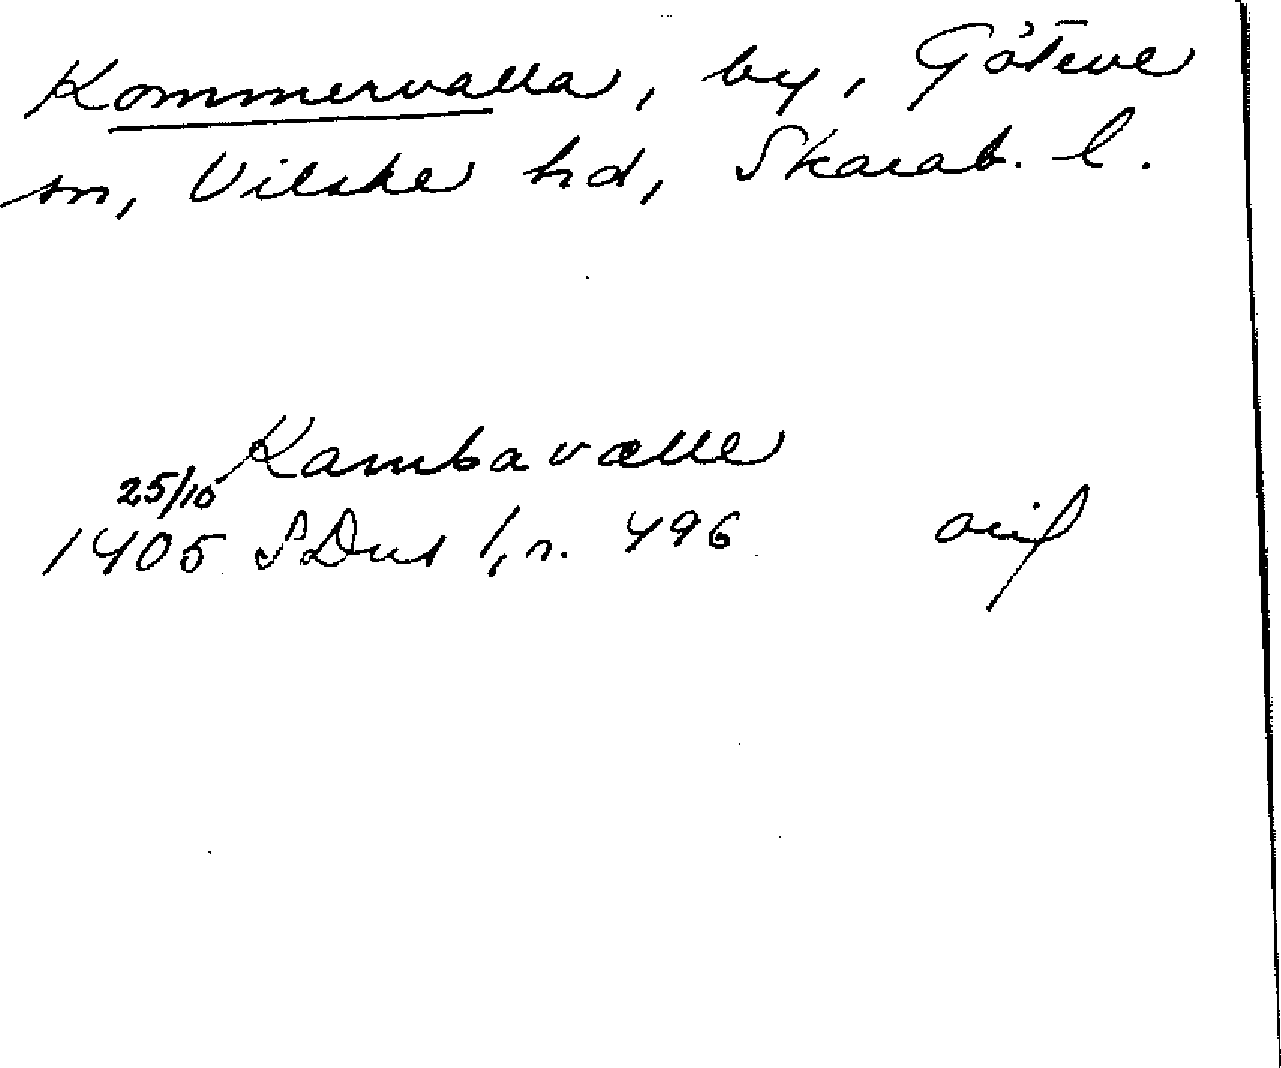 Kommervalla, by, Göteve
sn, Vilske hd, Skarab. l.
Kambavalle
25/10
1405 SDns 1, s. 496 orig